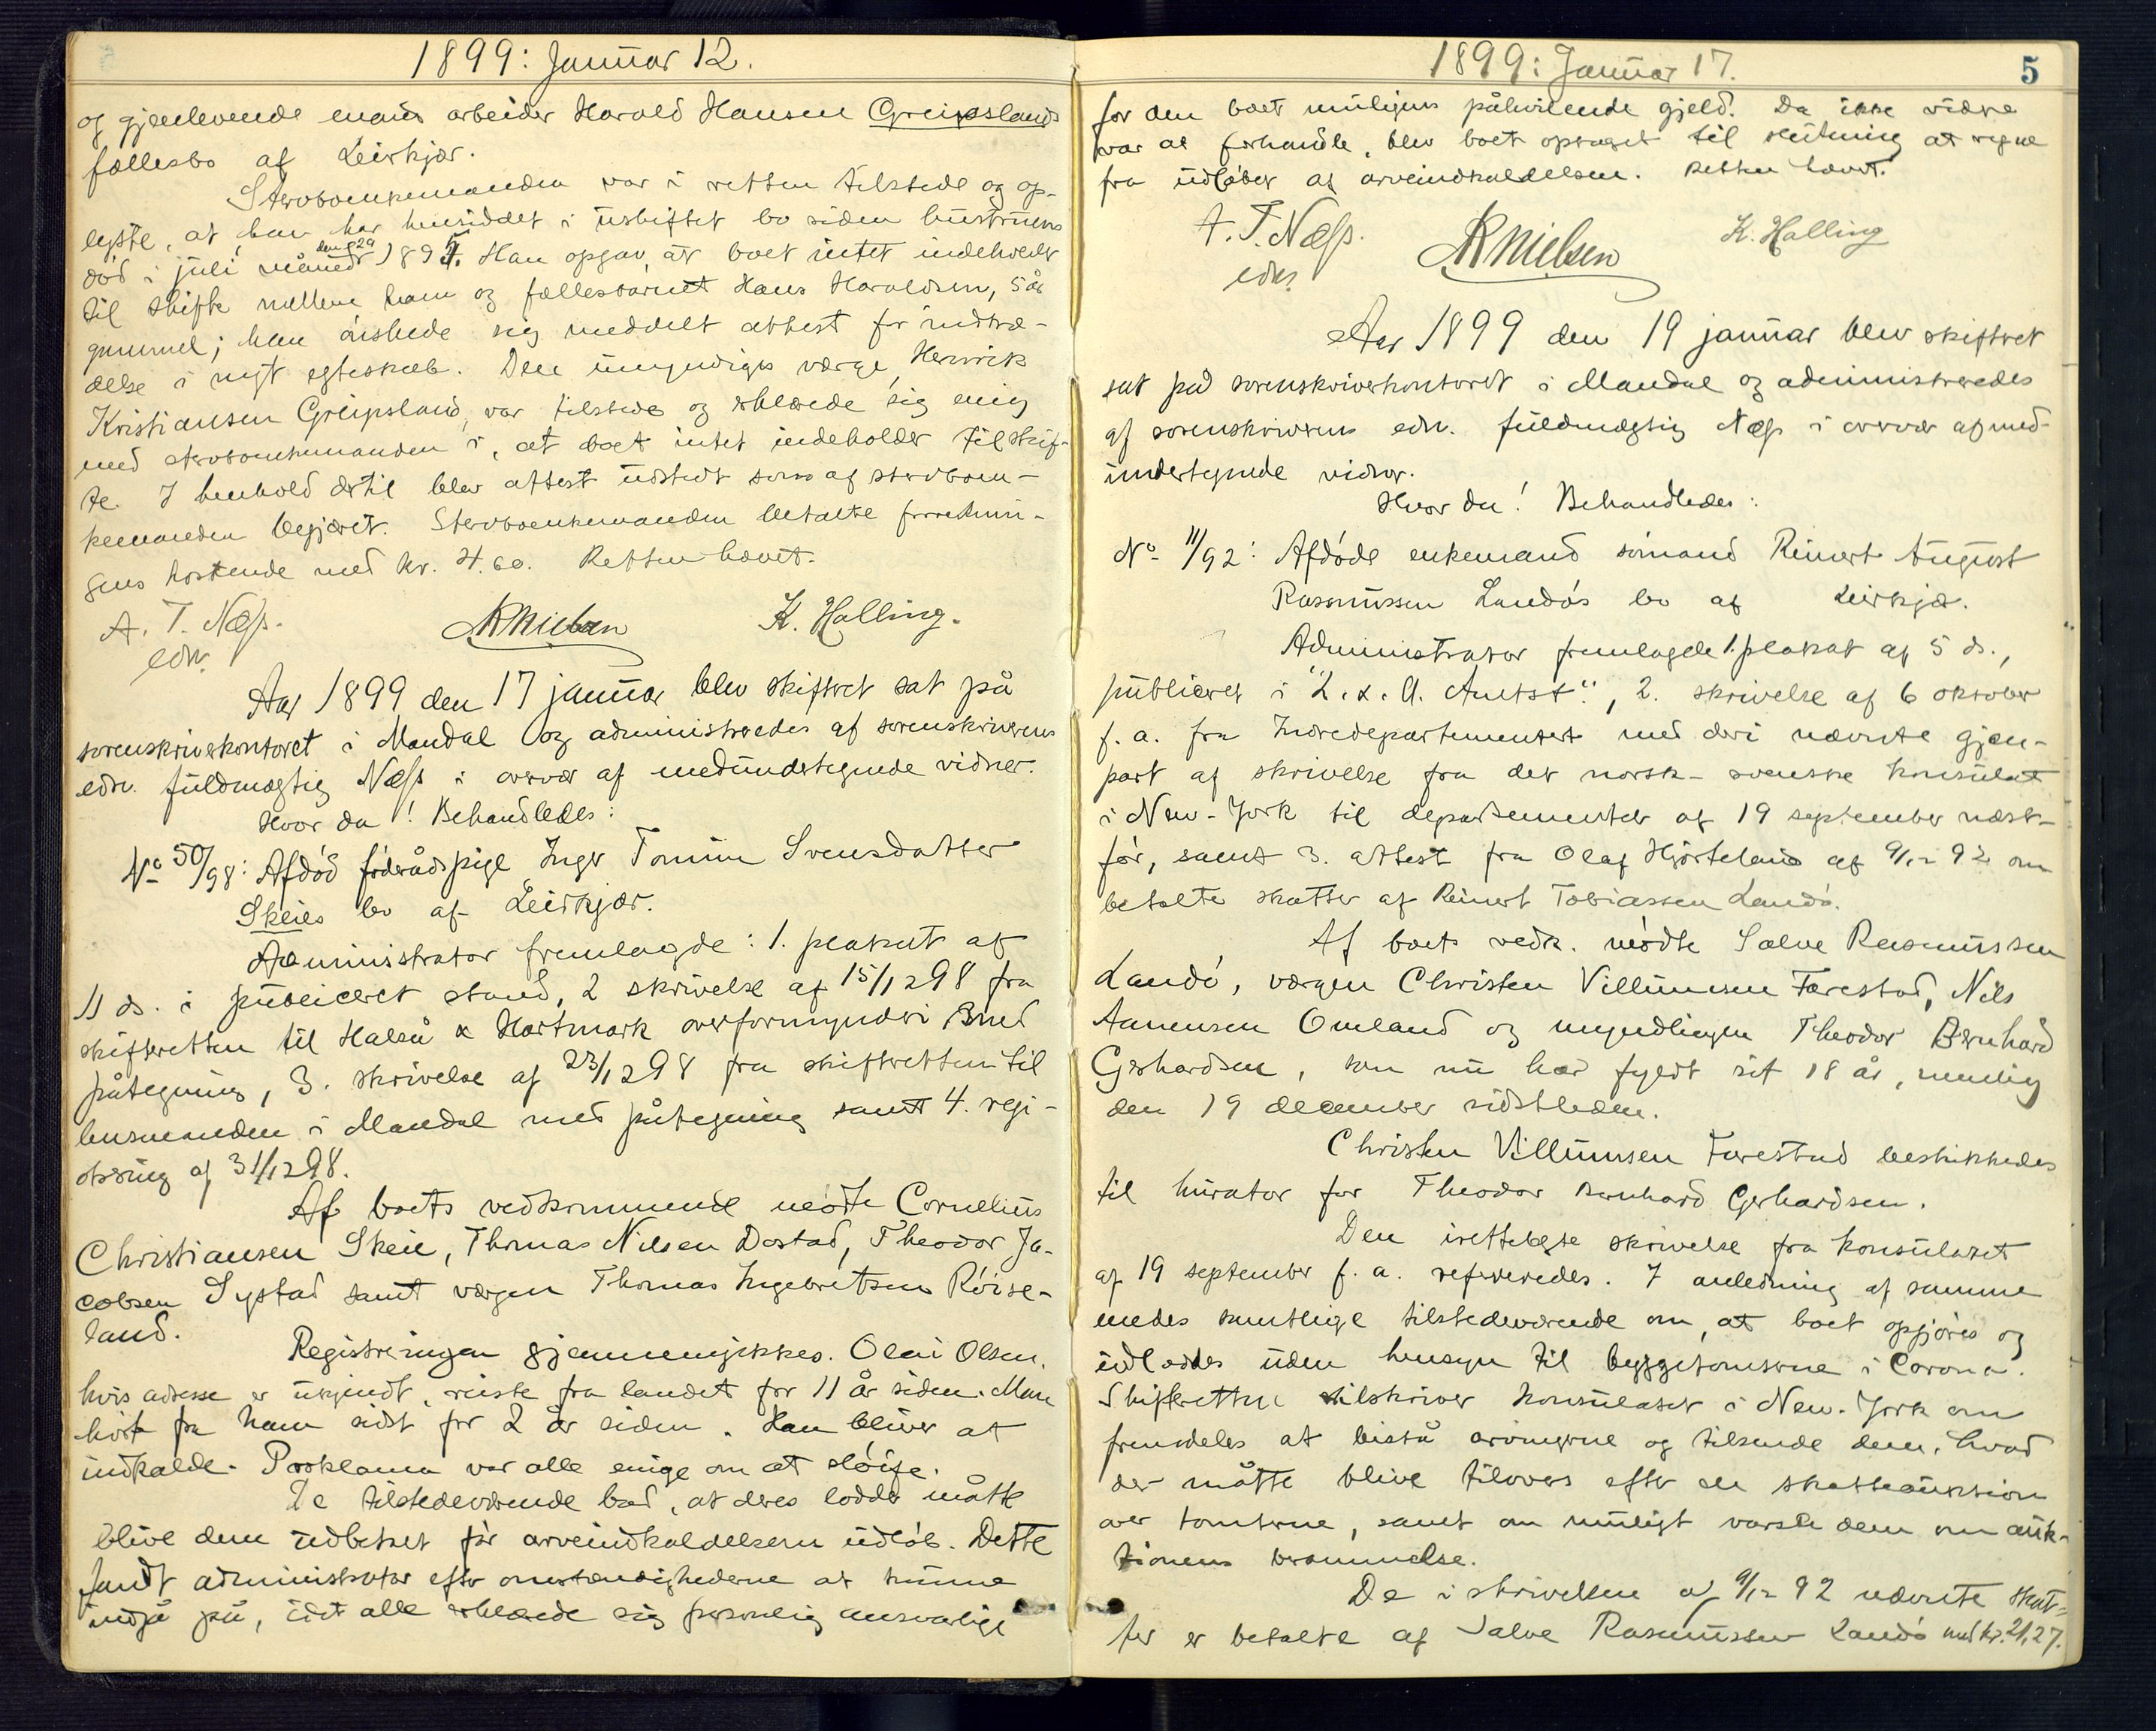 1899: Januar 12.
og gjenlevende mand arbeider Harold Hansen Greipslands
fællesbo af Leirkjær.
Stervboenkemanden var i retten tilstede og op-
lyste, at han har hensiddet i uskiftet bo siden hustruens
død i juli måned den 29 1895. Han opgav, at boet intet indeholder
til skifte mellem ham og fællesbarnet Hans Haroldsen, 5 år
gammel; han ønskede sig meddelt attest for indtræ-
delse i nyt egteskab. Den umyndiges værge, Henrik
Kristiansen Greipsland, var tilstede og erklærede sig enig
med stervboenkemanden i, at boet intet indeholder til skif-
te. I henhold dertil blev attest udstedt som af stervboen-
kemanden begjæret. Stervboenkemanden betalte forretnin-
gens kostende med kr. 4.60. Retten hævet.
A. T. Næss.
edsv.
NNielsen
K. Halling.
Aar 1899 den 17 januar blev skiftret sat på
sorenskriverkontoret i Mandal og administreredes af sorenskriverens
edsv. fuldmægtig Næss i overvær af medundertegnede vidner.
Hvor da! Behandledes:
No 50/98: Afdød føderådspige Inger Tomine Svensdatter
Skeies bo af Leirkjær.
Administrator fremlagde: 1. plakat af
11 ds. i publiceret stand, 2 skrivelse af 15/12 98 fra
skifteretten til Halså & Hartmark overformynderi med
påtegning, 3. skrivelse af 23/12 98 fra skifteretten til
lensmanden i Mandal med påtegning samt 4. regi-
strering af 31/12 98.
Af boets vedkommende mødte Cornelius
Christiansen Skeie, Thomas Nilsen Dostad, Theodor Ja-
cobsen Systad samt værgen Thomas Ingebretsen Röise-
land.
Registreringen gjennemgikkes. Olai Olsen,
hvis adresse er ukjendt, reiste fra landet for 11 år siden. Man
hørt fra ham sidst for 2 år siden. Han bliver at
indkalde. Proklama var alle enige om at sløife.
De tilstedeværende bad, at deres lodder måtte
blive dem udbetalt før arveindkaldelsens udløb. Dette
fandt administrator efter omstændighederne at kunne
indgå på, idet alle erklærede sig personlig ansvarlige
1899: Januar 17.
5
for den boet muligens påhvilende gjeld. Da ikke videre
var at forhandle, blev boet optaget til slutning at regne
fra udløbet af arveindkaldelsen. Retten hævet.
A. T. Næss.
edsv.
NNielsen
K. Halling
Aar 1899 den 19 januar blev skiftret
sat på sorenskriverkontoret i Mandal og administreredes
af sorenskriverens edsv. fuldmægtig Næss i overvær af med-
undertegnede vidner.
Hvor da! Behandledes:
No 11/92: Afdøde enkemand sømand Reinert August
Rasmussen Landøs bo af Leirkjær.
Administrator fremlagde 1. plakat af 5 ds.,
publiceret i "L. & M. Amtst.", 2. skrivelse af 6 oktober
f. a. fra Indredepartementet med deri nævnte gjen-
part af skrivelse fra det norsk-svenske konsulat
i New-York til departementet af 19 september næst-
før, samt 3. attest fra Olaf Hjorteland af 9/12 92 om
betalte skatter af Reinert Tobiassen Landø.
Af boets vedk. mødte Salve Rasmussen
Landø, værgen Christen Villumsen Færestad, Nils
Aanensen Omland og myndlingen Theodor Bernhard
Gerhardsen, som nu har fyldt sit 18 år, nemlig
den 19 december sidstleden.
Christen Villumsen Færestad beskikkedes
til kurator for Theodor Bernhard Gerhardsen.
Den irettelagte skrivelse fra konsulatet
af 19 september f. a. refereredes. I anledning af samme
enedes samtlige tilstedeværende om, at boet opgjøres og
udloddes uden hensyn til byggetomterne i Corona.
Skifteretten tilskriver konsulatet i New-York om
fremdeles at bistå arvingerne og tilsende dem, hvad
der måtte blive tilovers efter en skatteauktion
over tomterne, samt om muligt varsle dem om auk-
tionens berammelse.
De i skrivelsen af 9/12 92 nævnte skat-
ter er betalte af Salve Rasmussen Landø med kr. 21,27.